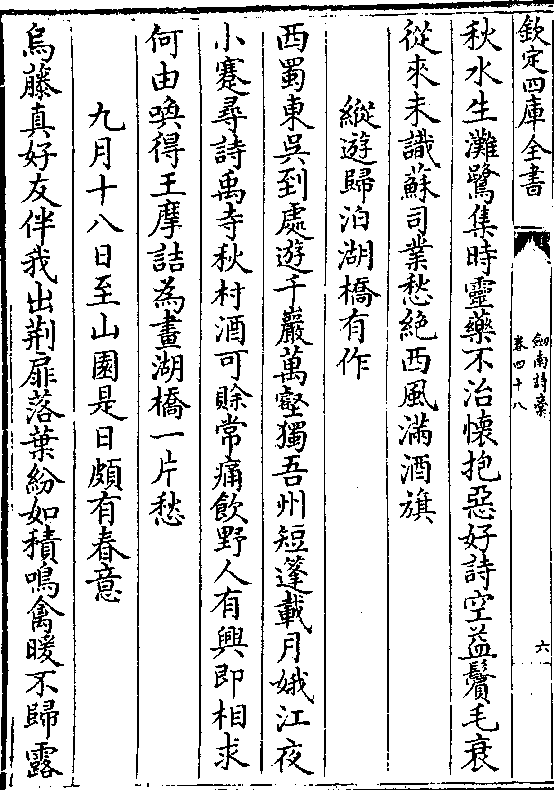 欽定四庫全書
劍南詩稾
卷四十八
六
秋水生灘鷺集時靈藥不治懷抱惡好詩空益鬢毛衰
從來未識蘇司業愁絕西風滿酒旗
縱遊歸泊湖橋有作
西蜀東吳到處遊千巖萬壑獨吾州短篷載月娥江夜
小蹇尋詩禹寺秋村酒可賖常痛飲野人有興即相求
何由喚得王摩詰為畫湖橋一片愁
九月十八日至山園是日頗有春意
烏藤真好友伴我出荆扉落葉紛如積鳴禽暖不歸露